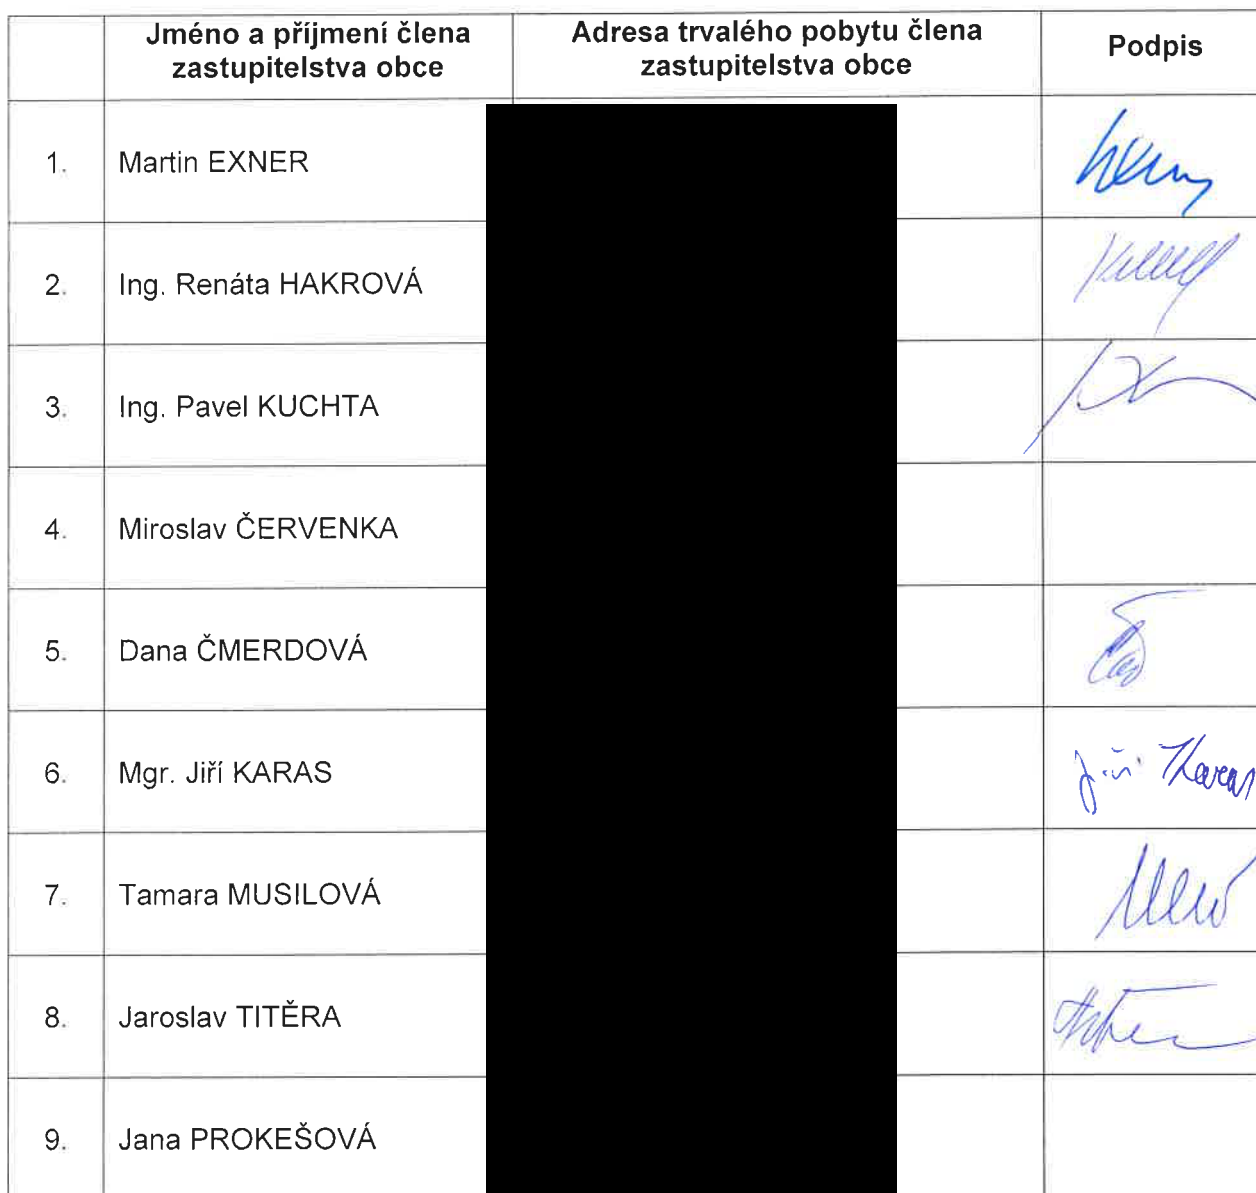 Jméno a příjmení člena zastupitelstva obce
Adresa trvalého pobytu člena zastupitelstva obce
Podpis
1. Martin EXNER
2. Ing. Renáta HAKROVÁ
3. Ing. Pavel KUCHTA
4. Miroslav ČERVENKA
5. Dana ČMERDOVÁ
6. Mgr. Jiří KARAS Jiří Karas
7. Tamara MUSILOVÁ
8. Jaroslav TITĚRA
9. Jana PROKEŠOVÁ